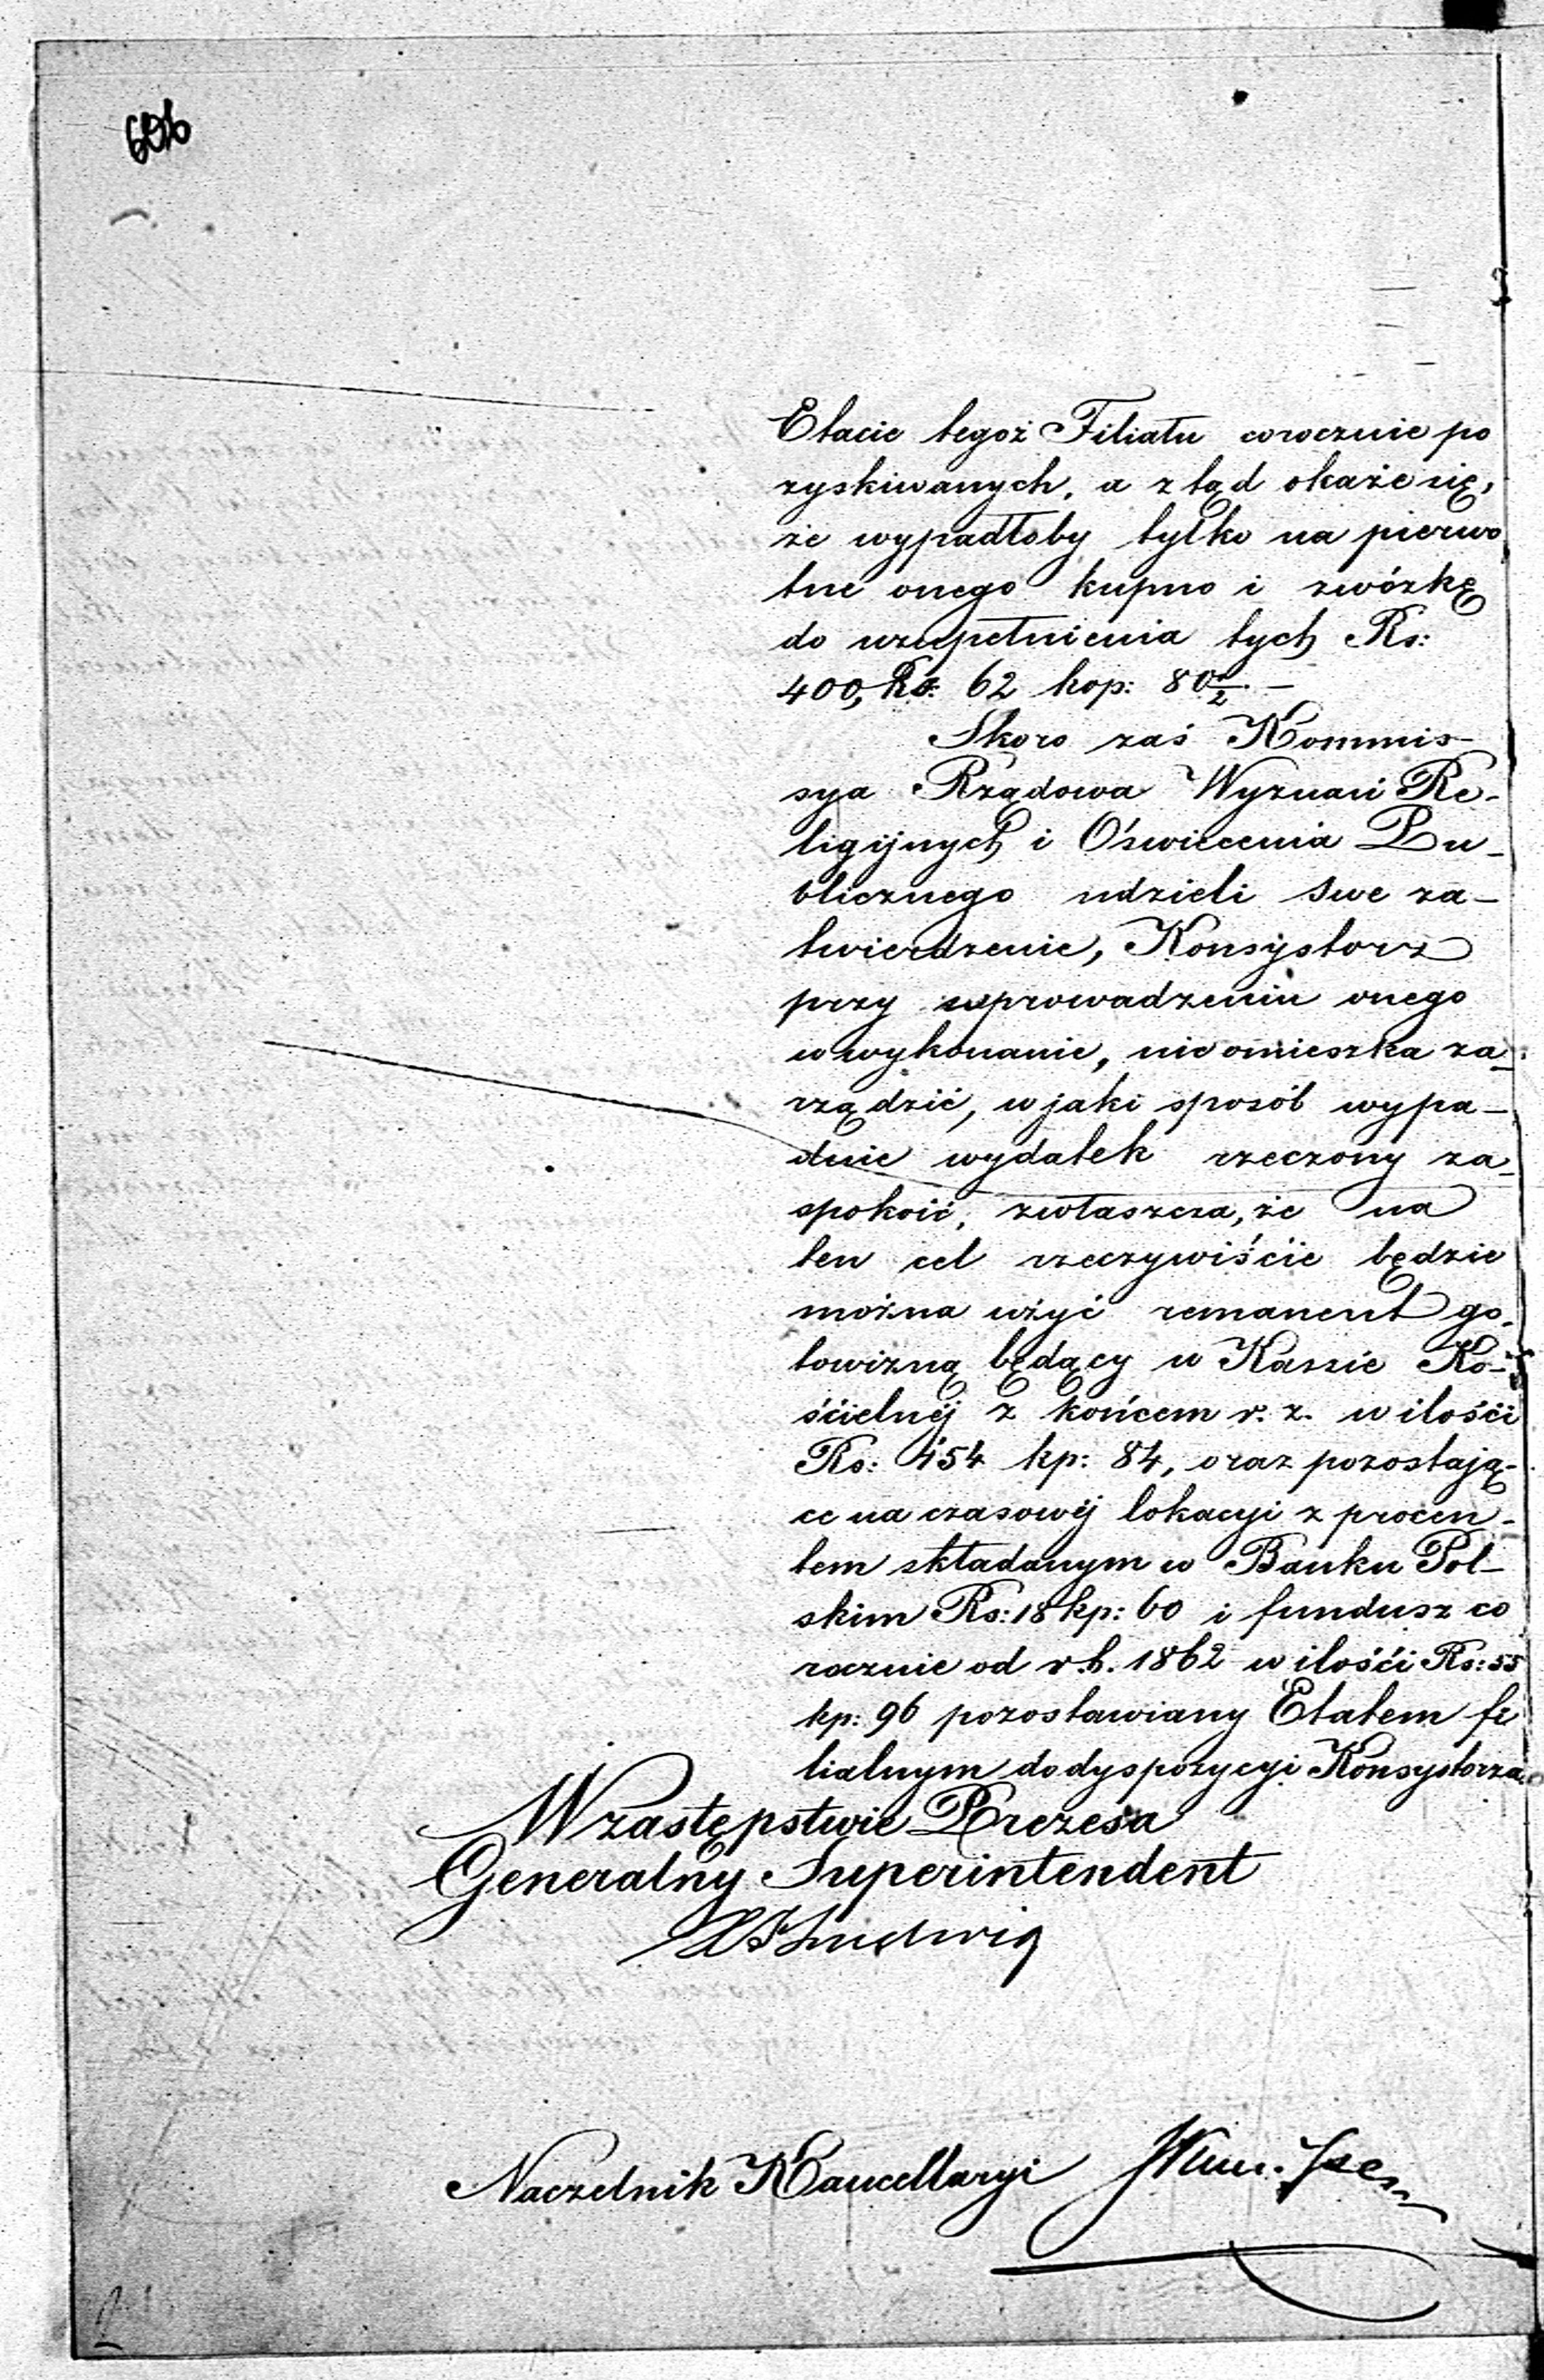 Etacie tegoż Filiatu corocznie po
zyskiwanych, a ztąd okaże się,
że wypadłoby tylko na pierwo
tne onego kupno i zwózkę
do uzupełnienia tych Rs:
400, Rs: 62 kop: 80 1/2. —
Skoro zaś Kommis-
sya Rządowa Wyznań Re-
ligijnych i Oświecenia Pu-
blicznego udzieli swe za-
twierdzenie, Konsystorz
przy wprowadzeniu onego
w wykonanie, nie omieszka za-
rządzić, w jaki sposób wypa-
dnie wydatek rzeczony za-
spokoić, zwłaszcza, że na
ten cel rzeczywiście będzie
można użyć remanent go-
towizną będący w Kassie Ko-
ścielnéj z końcem r. z. w ilości
Rs: 454 kp: 84, oraz pozostają-
ce na czasowéj lokacyi z procen-
tem składanym w Banku Pol-
skim Rs: 18 kp: 60 i fundusz co
rocznie od r. b. 1862 w ilości Rs: 55
kp: 96 pozostawiany Etatem fi
lialnym do dyspozycyi Konsystorza.
W zastępstwie Prezesa
Generalny Superintendent
Ludwig
Naczelnik Kancellaryi